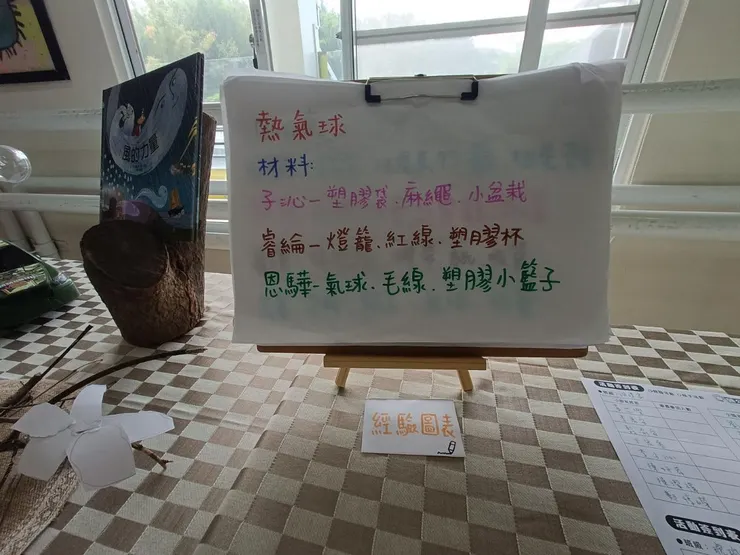 風的力量
熱氣球
材料:
子沁-塑膠袋、麻繩、小盆栽
睿綸-燈籠、紅線、塑膠杯
恩驊-氣球、毛線、塑膠小籃子
經驗圖表